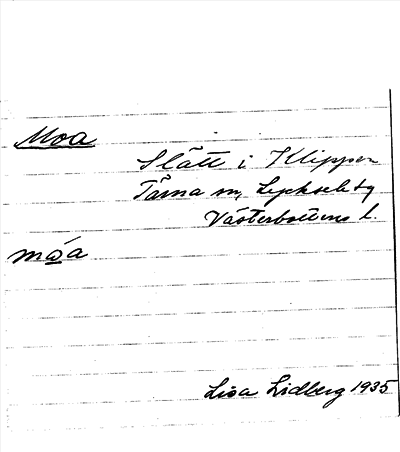 Moa
Slått i Klippen
Tärna sn, Lycksele tg
Västerbottens l.
móa
Lisa Lidberg 1935